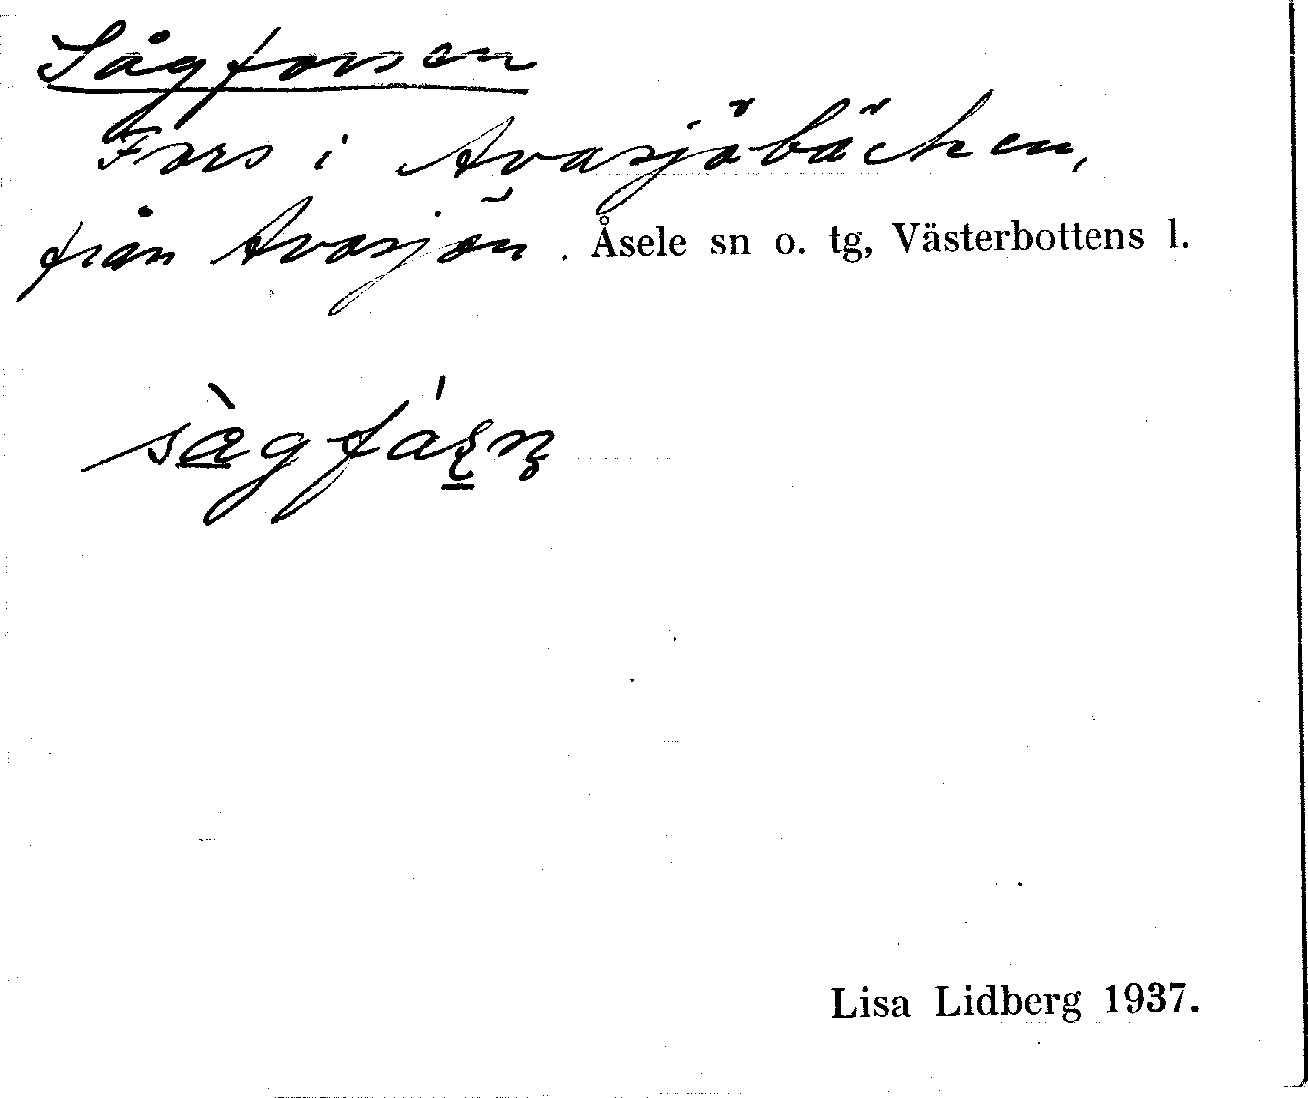 Sågforsen
Fors i Avasjöbäcken,
från Avasjön. Åsele sn o. tg, Västerbottens l.
Lisa Lidberg 1937.